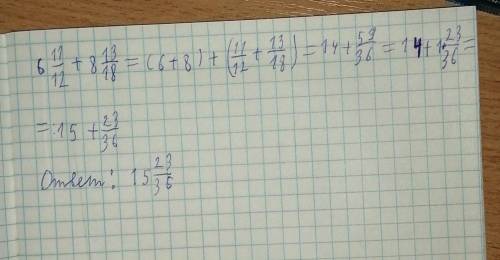 6 11/12 + 8 13/18 = (6+8) + (11/12 + 13/18) = 14 + 59/36 = 14 + 1 23/36 =
= 15 + 23/36
Ответ: 15 23/36